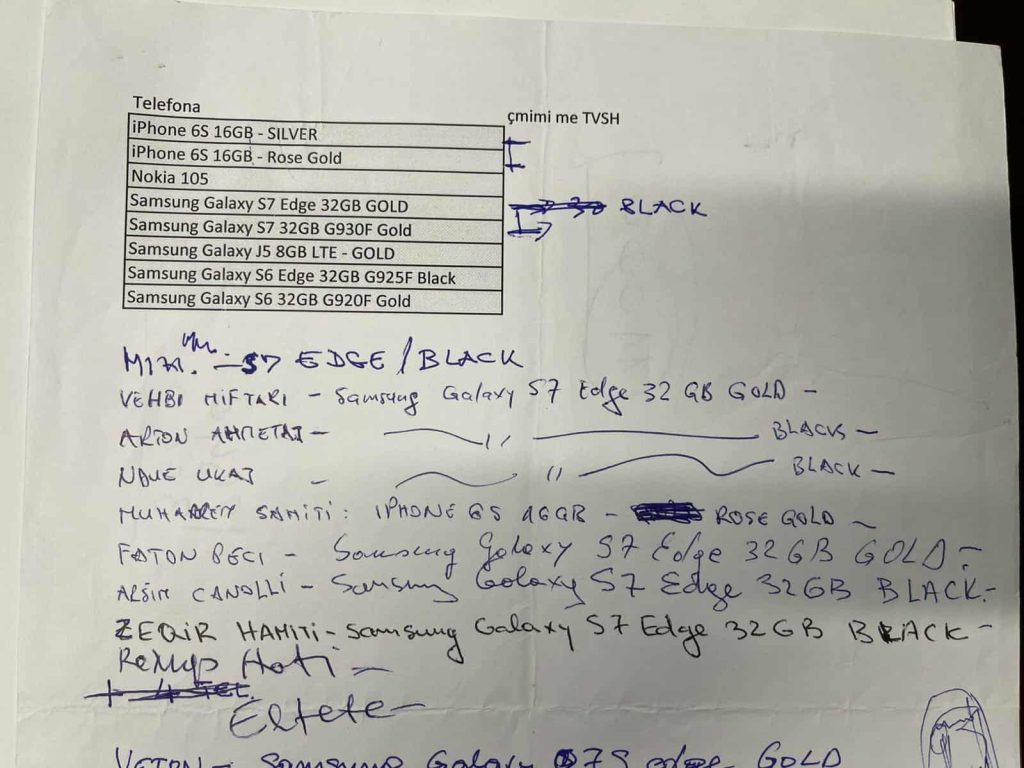 Telefona
çmimi me TVSH
iPhone 6S 16GB - SILVER
iPhone 6S 16GB - Rose Gold
Nokia 105
Samsung Galaxy S7 Edge 32GB GOLD
BLACK
Samsung Galaxy S7 32GB G930F Gold
Samsung Galaxy J5 8GB LTE - GOLD
Samsung Galaxy S6 Edge 32GB G925F Black
Samsung Galaxy S6 32GB G920F Gold
S7 EDGE/BLACK
VEHBI MIFTARI - Samsung Galaxy S7 Edge 32 GB GOLD -
ARTON AHMETAJ - 〃 BLACK -
NDUE UKAJ - 〃 BLACK -
MUHARREM SAMITI: IPHONE 6S 16GB - ROSE GOLD -
FATON BECI - Samsung Galaxy S7 Edge 32GB GOLD -
ARSIM CANOLLI - Samsung Galaxy S7 Edge 32GB BLACK -
ZEQIR HAMITI - Samsung Galaxy S7 Edge 32GB BLACK -
Hoti -
VETON - Samsung Galaxy edge GOLD